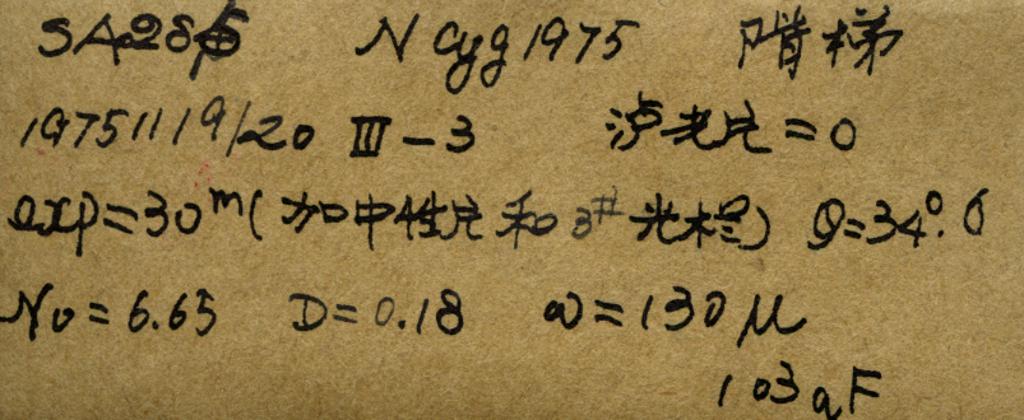 SA028 N Cyg 1975 阶梯
19751119/20 III-3 滤光片=0
exp=30ᵐ(加中性片和3#光栏) θ=34°.6
No=6.65 D=0.18 ω=130μ
103aF